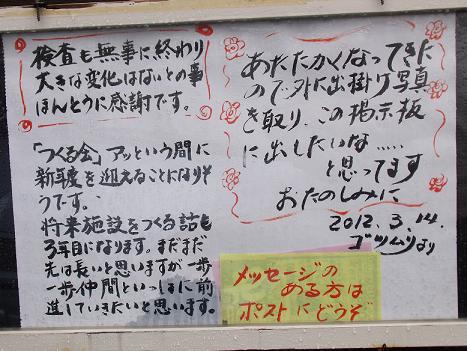 検査も無事に終わり
大きな変化はないとの事
ほんとうに感謝です。
「つくる会」アッという間に
新年度を迎えることになりそ
うです。
将来施設をつくる話も
3年目になります。まだまだ
先は長いと思いますが一歩
一歩仲間といっしょに前
進していきたいと思います。
あたたかくなってきた
ので外に出掛け写真
を取り、この掲示板
に出したいな.....
と思ってます
おたのしみに
2012.3.14.
ゴツムリより
メッセージの
ある方は
ポストにどうぞ